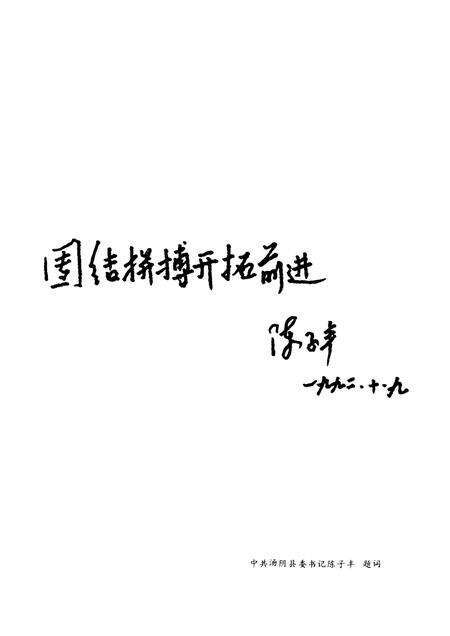 团结拼搏开拓前进
陈子丰
一九九二·十·九
中共汤阴县委书记陈子丰 题词